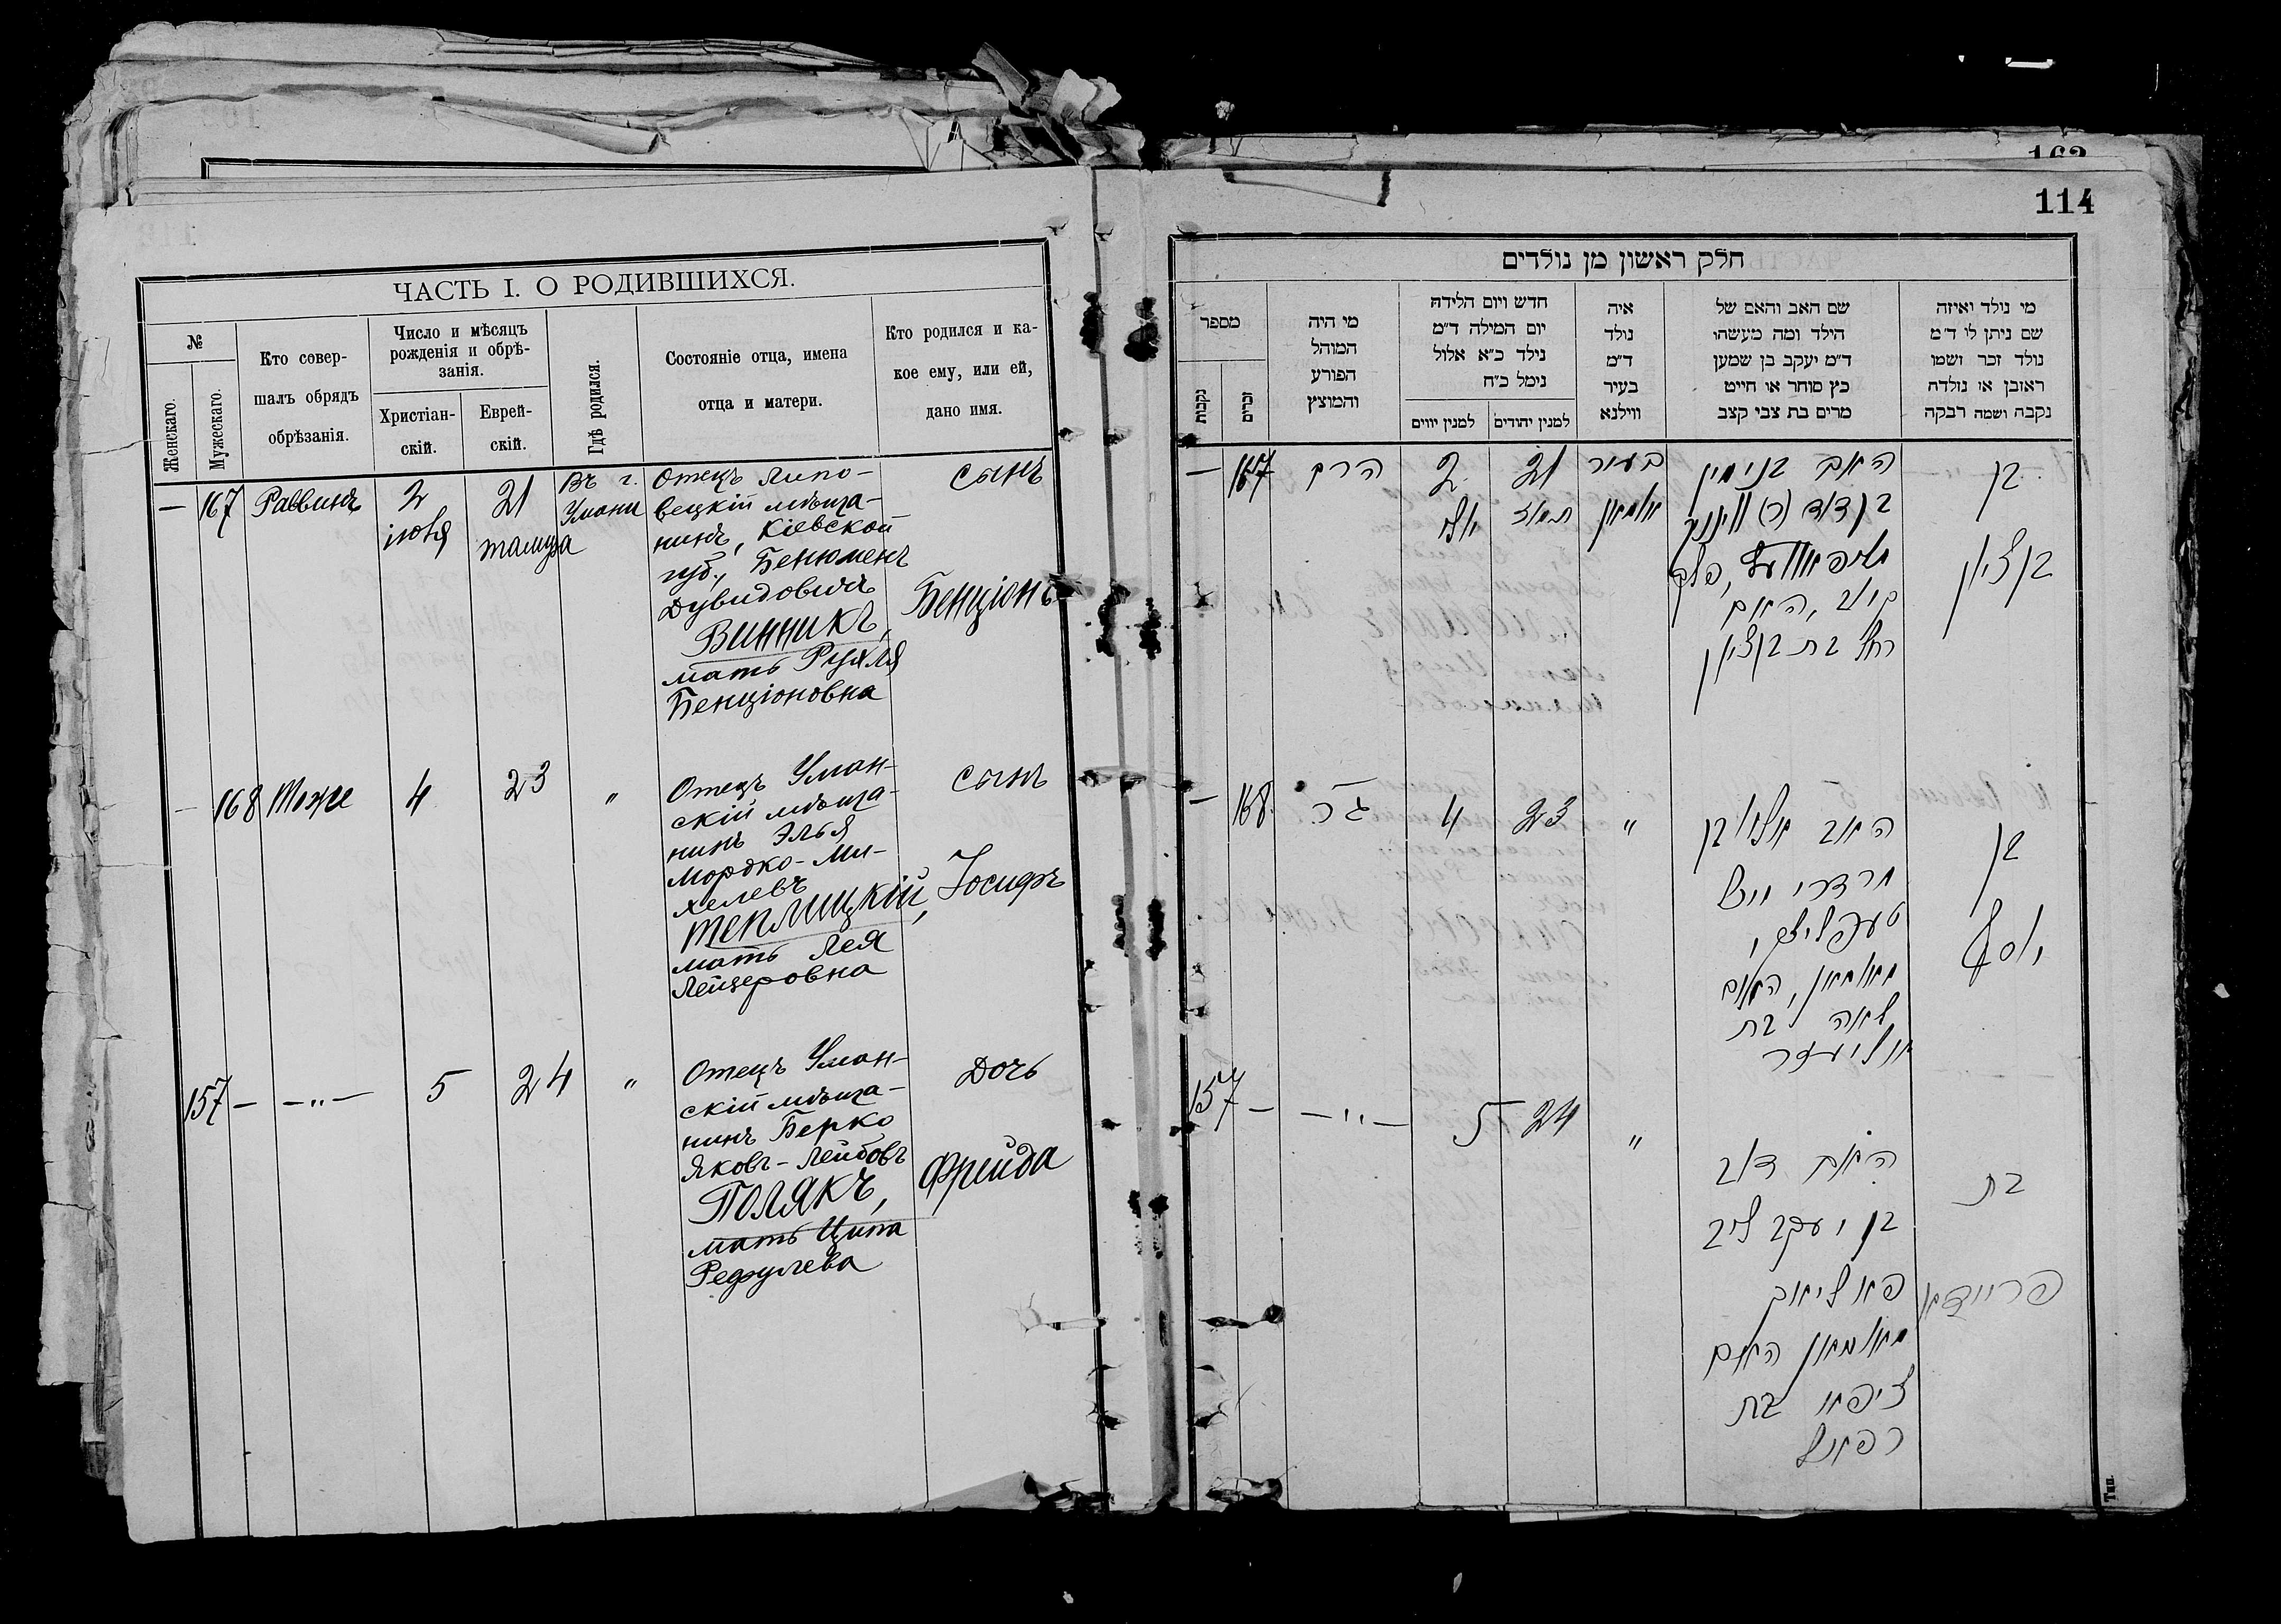 114
ЧАСТЬ I. О РОДИВШИХСЯ.
№
Женскаго.
Мужескаго.
Кто совер-
шалъ обрядъ
обрѣзанія.
Число и мѣсяцъ
рожденія и обрѣ-
занія.
Христіан-
скій.
Еврей-
скій.
Гдѣ родился.
Состояніе отца, имена
отца и матери.
Кто родился и ка-
кое ему, или ей,
дано имя.
— 167 Раввинъ
2
іюля
21
тамуза
Въ г.
Умани
Отецъ Липо-
вецкій мѣща-
нинъ, Кіевской
губ., Бенюменъ
Дувидовичъ
Винникъ,
мать Рухля
Бенціоновна
сынъ
Бенціонъ
— 168 Тоже
4
23
"
Отецъ Уман-
скій мѣща-
нинъ Элья
Мордко-Ми-
хелевъ
Теплицкій,
мать Лея
Лейзеровна
сынъ
Іосифъ
157 — — " —
5
24
"
Отецъ Уман-
скій мѣща-
нинъ Берко
Яковъ-Лейбовъ
Полякъ,
мать Ципа
Рефулева
Дочь
Фрейда
חלק ראשון מן נולדים
מי נולד ואיזה
שם ניתן לו ד״מ
נולד זכר ושמו
ראובן או נולדה
נקבה ושמה רבקה
שם האב והאם של
הילד ומה מעשהו
ד״מ יעקב בן שמען
כץ סוחר או חייט
מרים בת צבי קצב
איה
נולד
ד״מ
בעיר
ווילנא
חדש ויום הלידה
יום המילה ד״מ
נילד כ״א אלול
נימל כ״ח
למנין יהודים
למנין יווים
מי היה
המוהל
הפורע
והמוצץ
מספר
זכרים
נקבות
בן
בן ציון
האב בנימין
בן דוד
קיוב, האם
רחל בת בן ציון
בעיר
אומאן
21
תמוז
2
יולי
הרב
167 —
בן
יוסף
האב אלי׳ בן
מרדכי מיכל
מאומאן, האם
לאה בת
אליעזר
"
23
4
168 —
בת
פריידא
האב דוב
בן יעקב ליב
פאליאק
מאומאן האם
ציפא בת
רפאל
"
24
5
— " —
— 157
Тип.